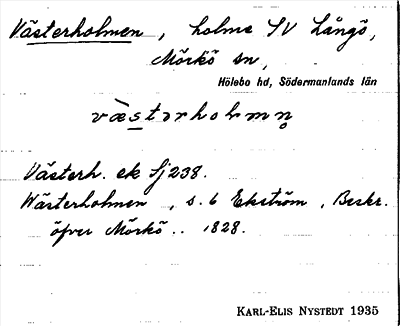 Västerholmen, holme SV Långö,
Mörkö sn,
Hölebo hd, Södermanlands län
væ̀stərholmn̥
Västerh. ek Sj 238.
Wästerholmen, s. 6 Ekström, Beskr.
öfver Mörkö .. 1828.
KARL-ELIS NYSTEDT 1935